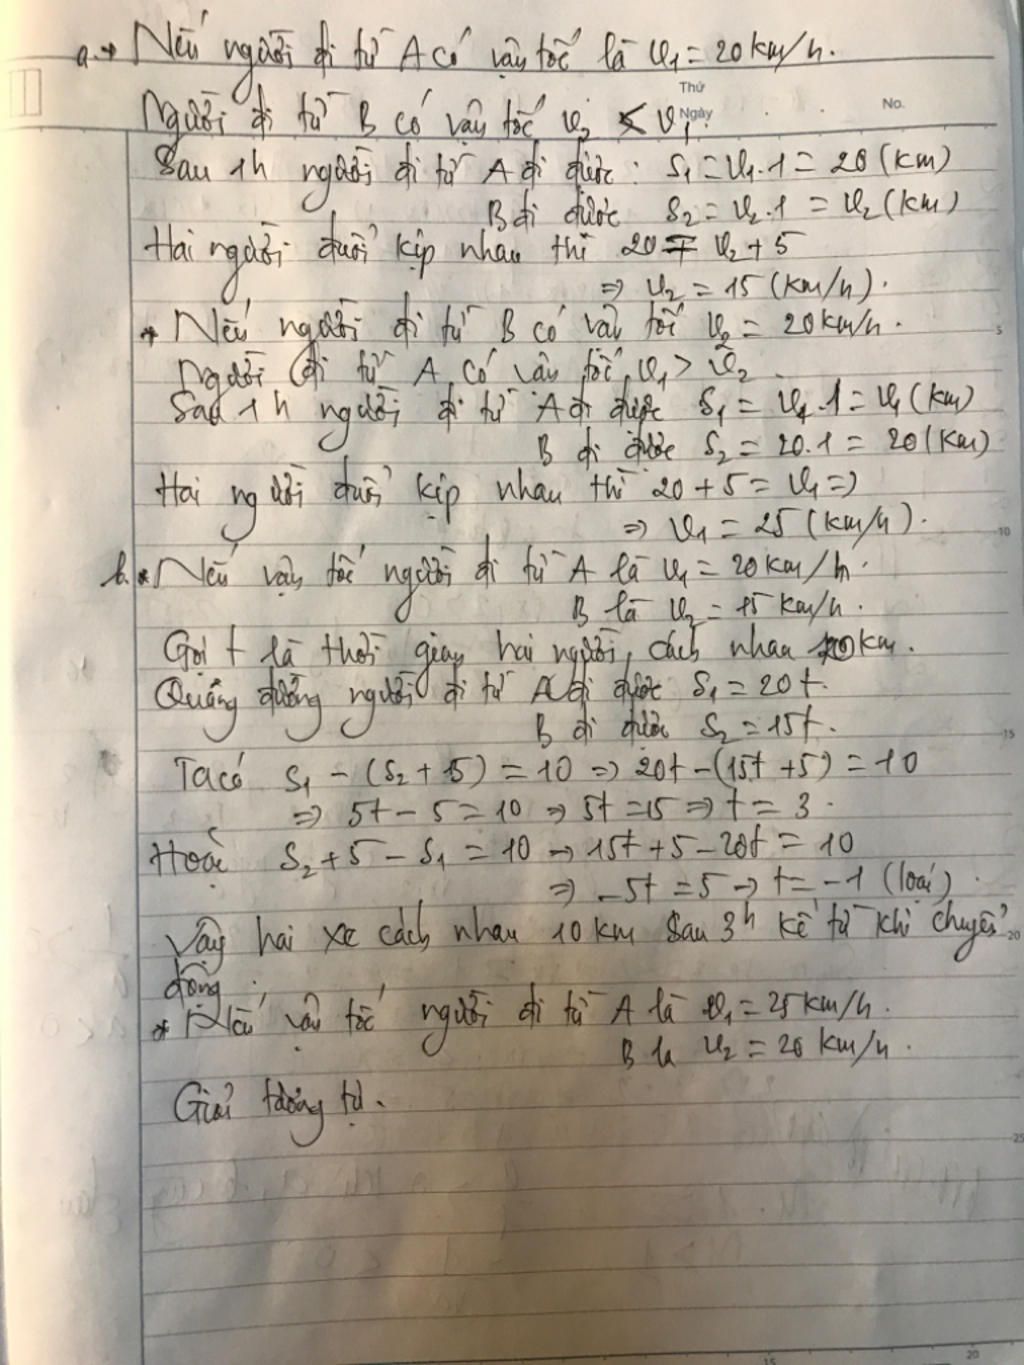 a. + Nếu người đi từ A có vận tốc là v₁ = 20 km/h.
Thứ
Ngày
No.
Người đi từ B có vận tốc v₂ < v₁.
Sau 1h người đi từ A đi được: S₁ = v₁.1 = 20 (km)
B đi được S₂ = v₂.1 = v₂ (km)
Hai người đuổi kịp nhau thì 20 = v₂ + 5
⇒ v₂ = 15 (km/h).
+ Nếu người đi từ B có vận tốc v₂ = 20 km/h.
Người đi từ A có vận tốc v₁ > v₂
Sau 1h người đi từ A đi được S₁ = v₁.1 = v₁ (km)
B đi được S₂ = 20.1 = 20 (km)
Hai người đuổi kịp nhau thì 20 + 5 = v₁ ⇒
⇒ v₁ = 25 (km/h).
b. * Nếu vận tốc người đi từ A là v₁ = 20 km/h.
B là v₂ = 15 km/h.
Gọi t là thời gian hai người cách nhau 10 km.
Quãng đường người đi từ A đi được S₁ = 20t.
B đi được S₂ = 15t.
Ta có S₁ - (S₂ + 5) = 10 ⇒ 20t - (15t + 5) = 10
⇒ 5t - 5 = 10 ⇒ 5t = 15 ⇒ t = 3.
Hoặc S₂ + 5 - S₁ = 10 → 15t + 5 - 20t = 10
⇒ -5t = 5 → t = -1 (loại).
Vậy hai xe cách nhau 10 km sau 3h kể từ khi chuyển
động.
* Nếu vận tốc người đi từ A là v₁ = 25 km/h.
B là v₂ = 20 km/h.
Giải tương tự.
5
10
15
20
25
15
20